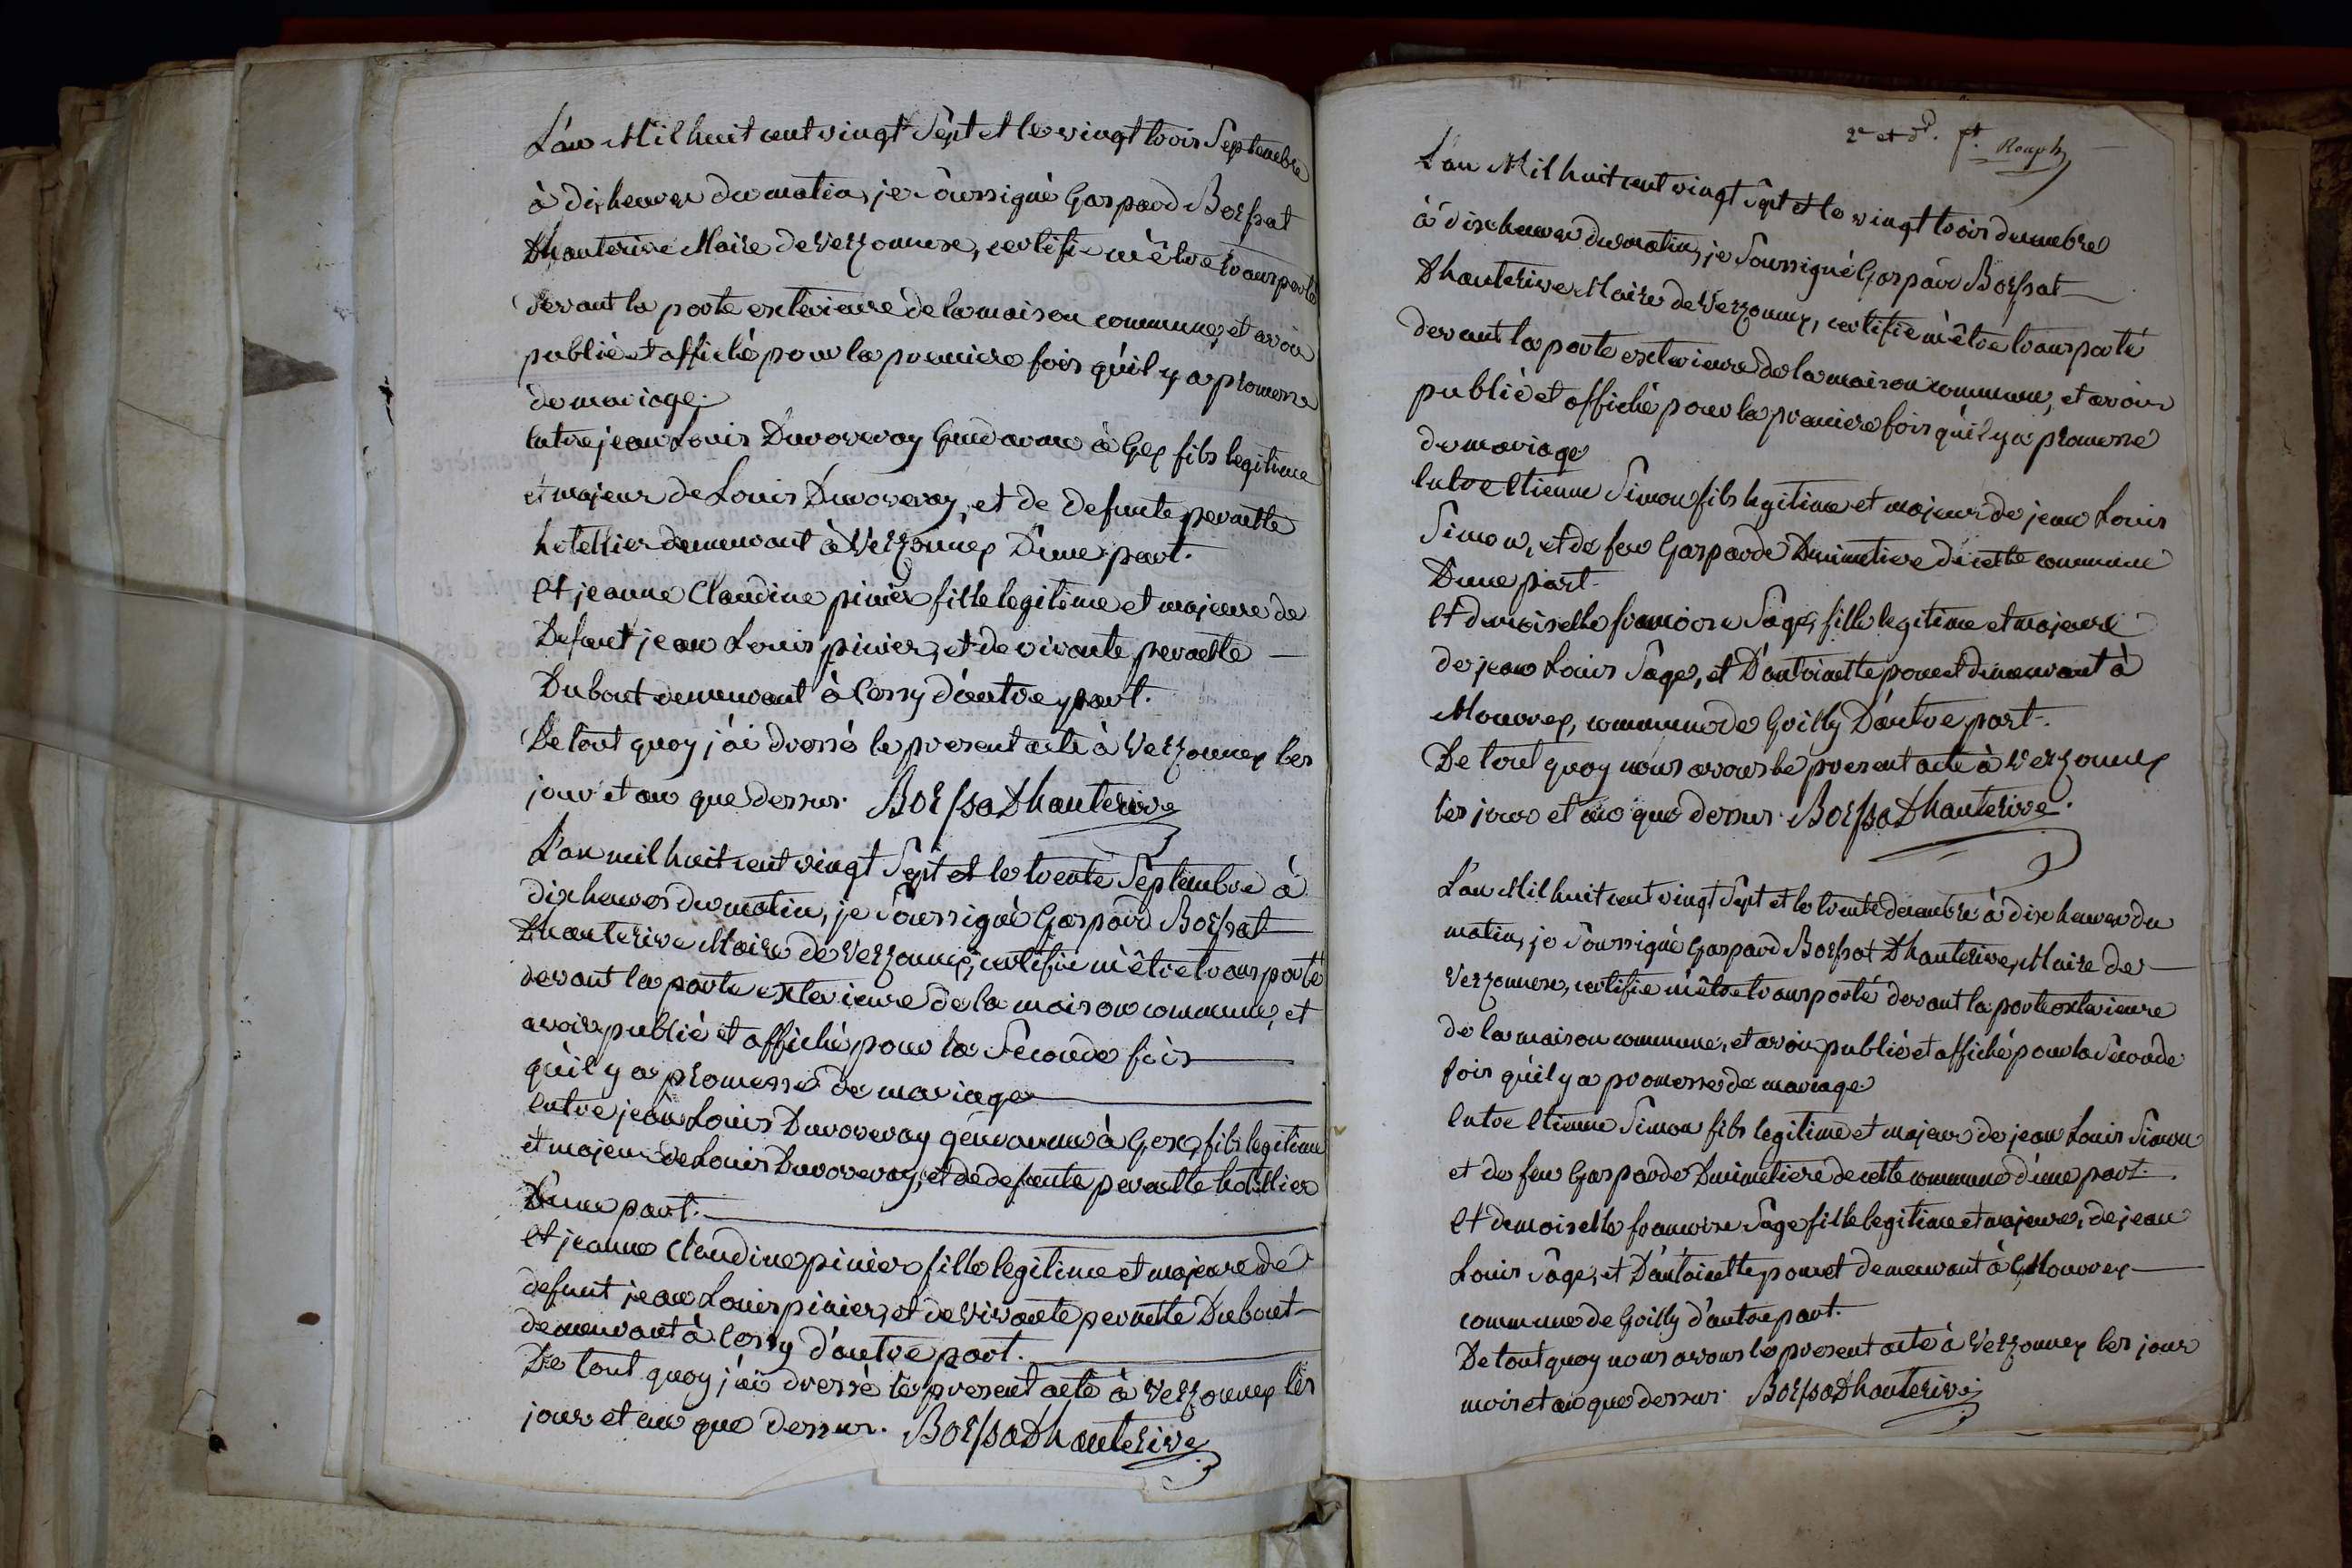 L'an Mil huit cent vingt Sept et le vingt trois Septembre
à dix heures du matin, je Soussigné Gaspard Borssat
Dhauterive Maire de Verzonnex, certifie m'être transporté
devant la porte exterieure de la maison commune, et avoir
publié et affiché pour la premiere fois qu'il y a promesse
de mariage.
Entre jean Louis Duvoveray à Gex fils legitime
et majeur de Louis Duvoveray, et de defunte pernette
hotellier demeurant à Verzonnex D'une part.
Et jeanne Claudine pinier fille legitime et majeure de
Defunt jean Louis pinier, et de vivante pernette —
Dubout demeurant à Cessy d'autre part.
De tout quoy j'ai dressé le present acte à Verzonnex les
jour et an que dessus. Borssat Dhauterive
L'an mil huit cent vingt Sept et le trente Septembre à
dix heures du matin, je Soussigné Gaspard Borssat
Dhauterive Maire de Verzonnex, certifie m'être transporté
devant la porte exterieure de la maison commune, et
avoir publié et affiché pour la Seconde fois —
qu'il y a promesse de mariage —
Entre jean Louis Duvoveray à Gex, fils legitime
et majeur de Louis Duvoveray, et de defunte pernette hotellier
D'une part. —
Et jeanne Claudine pinier fille legitime et majeure de
defunt jean Louis pinier, et de vivante pernette Dubout —
demeurant à Cessy d'autre part. —
De tout quoy j'ai dressé le present acte à Verzonnex les
jour et an que dessus. Borssat Dhauterive
2e et
L'an Mil huit cent vingt Sept et le vingt trois decembre
à dix heures du matin, je Soussigné Gaspard Borssat —
Dhauterive Maire de Verzonnex, certifie m'être transporté
devant la porte exterieure de la maison commune, et avoir
publié et affiché pour la premiere fois qu'il y a promesse
de mariage
Entre Etienne Simon fils legitime et majeur de jean Louis
Simon, et de feu Gasparde Dumetiere de cette commune
D'une part.
Et demoiselle francoise Sage, fille legitime et majeure
de jean Louis Sage, et D'antoinette ponet demeurant à
Mourex, commune de Grilly D'autre part.
De tout quoy nous avons le present acte à Verzonnex
les jour et an que dessus. Borssat Dhauterive.
L'an Mil huit cent vingt Sept et le trente decembre à dix heures du
matin, je Soussigné Gaspard Borssat Dhauterive, Maire de —
Verzonnex, certifie m'être transporté devant la porte exterieure
de la maison commune, et avoir publié et affiché pour la Seconde
fois qu'il y a promesse de mariage
Entre Etienne Simon fils legitime et majeur de jean Louis Simon
et de feu Gasparde Dumetiere de cette commune d'une part.
Et demoiselle francoise Sage fille legitime et majeure, de jean
Louis Sage, et D'antoinette ponet demeurant à Mourex —
commune de Grilly d'autre part.
De tout quoy nous avons le present acte à Verzonnex les jour
mois et an que dessus. Borssat Dhauterive